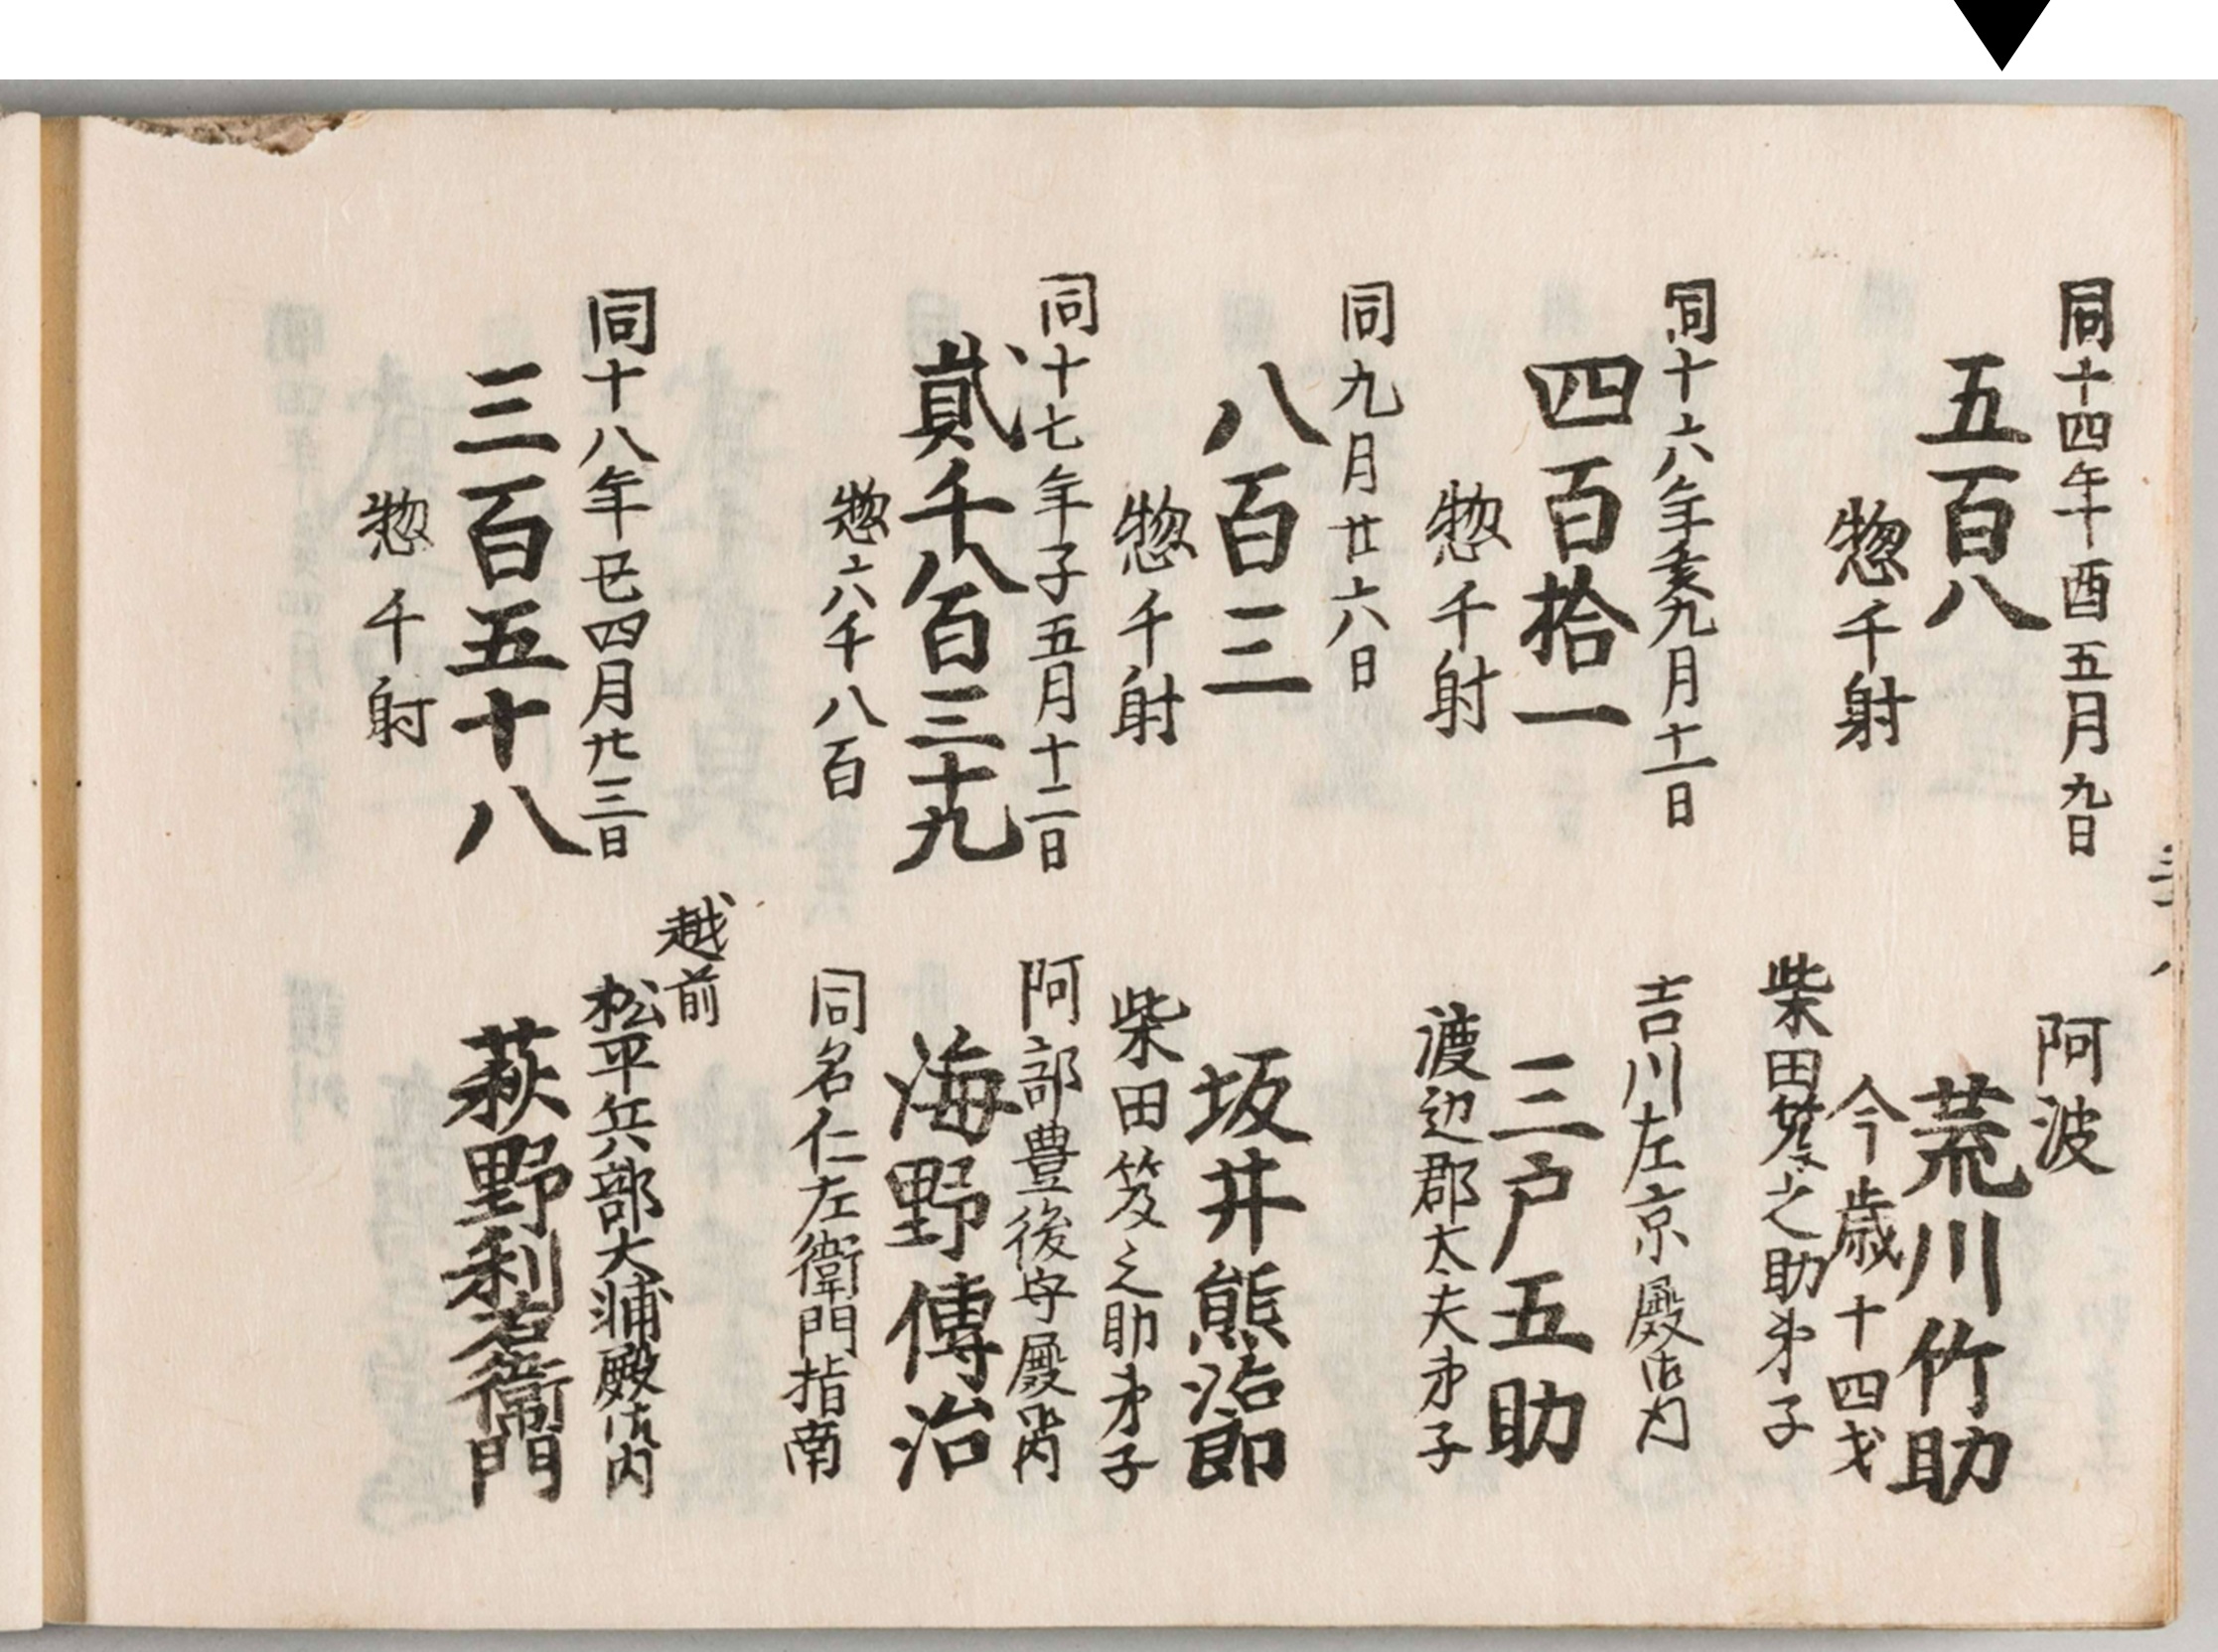 同十四年酉五月九日
阿波
五百八
荒川竹助
今歳十四才
惣千射
柴田笈之助弟子
同十六年亥九月十一日
吉川左京殿御内
四百拾一
三戸五助
惣千射
渡辺郡太夫弟子
同九月廿六日
八百三
坂井熊治郎
惣千射
柴田笈之助弟子
同十七年子五月十二日
阿部豊後守殿御内
貮千八百三十九
海野傳治
惣六千八百
同名仁左衛門指南
越前
同十八年丑四月廿三日
松平兵部大浦殿御内
三百五十八
萩野利右衛門
惣千射